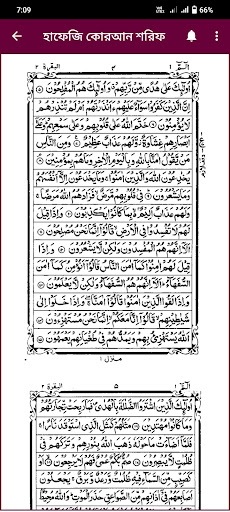 7:09
66%
হাফেজি কোরআন শরিফ
الٓمّٓ ١ ٣ البقرة ٢
اُولٰٓئِكَ عَلٰى هُدًى مِّنْ رَّبِّهِمْ وَاُولٰٓئِكَ هُمُ الْمُفْلِحُوْنَ
اِنَّ الَّذِيْنَ كَفَرُوْا سَوَآءٌ عَلَيْهِمْ ءَاَنْذَرْتَهُمْ اَمْ لَمْ تُنْذِرْهُمْ
لَا يُؤْمِنُوْنَ خَتَمَ اللّٰهُ عَلٰى قُلُوْبِهِمْ وَعَلٰى سَمْعِهِمْ وَعَلٰٓى
اَبْصَارِهِمْ غِشَاوَةٌ وَّلَهُمْ عَذَابٌ عَظِيْمٌ وَمِنَ النَّاسِ
مَنْ يَّقُوْلُ اٰمَنَّا بِاللّٰهِ وَبِالْيَوْمِ الْاٰخِرِ وَمَا هُمْ بِمُؤْمِنِيْنَ
يُخٰدِعُوْنَ اللّٰهَ وَالَّذِيْنَ اٰمَنُوْا وَمَا يَخْدَعُوْنَ اِلَّآ اَنْفُسَهُمْ
وَمَا يَشْعُرُوْنَ فِيْ قُلُوْبِهِمْ مَّرَضٌ فَزَادَهُمُ اللّٰهُ مَرَضًا
وَلَهُمْ عَذَابٌ اَلِيْمٌ بِمَا كَانُوْا يَكْذِبُوْنَ وَاِذَا قِيْلَ
لَهُمْ لَا تُفْسِدُوْا فِي الْاَرْضِ قَالُوْٓا اِنَّمَا نَحْنُ مُصْلِحُوْنَ
اَلَآ اِنَّهُمْ هُمُ الْمُفْسِدُوْنَ وَلٰكِنْ لَّا يَشْعُرُوْنَ وَاِذَا
قِيْلَ لَهُمْ اٰمِنُوْا كَمَآ اٰمَنَ النَّاسُ قَالُوْٓا اَنُؤْمِنُ كَمَآ اٰمَنَ
السُّفَهَآءُ اَلَآ اِنَّهُمْ هُمُ السُّفَهَآءُ وَلٰكِنْ لَّا يَعْلَمُوْنَ
وَاِذَا لَقُوا الَّذِيْنَ اٰمَنُوْا قَالُوْٓا اٰمَنَّا وَاِذَا خَلَوْا اِلٰى
شَيٰطِيْنِهِمْ قَالُوْٓا اِنَّا مَعَكُمْ اِنَّمَا نَحْنُ مُسْتَهْزِءُوْنَ
اَللّٰهُ يَسْتَهْزِئُ بِهِمْ وَيَمُدُّهُمْ فِيْ طُغْيَانِهِمْ يَعْمَهُوْنَ
منزل ١
الٓمّٓ ١ ٥ البقرة ٢
اُولٰٓئِكَ الَّذِيْنَ اشْتَرَوُا الضَّلٰلَةَ بِالْهُدٰى فَمَا رَبِحَتْ تِّجَارَتُهُمْ
وَمَا كَانُوْا مُهْتَدِيْنَ مَثَلُهُمْ كَمَثَلِ الَّذِي اسْتَوْقَدَ نَارًا
فَلَمَّآ اَضَآءَتْ مَا حَوْلَهٗ ذَهَبَ اللّٰهُ بِنُوْرِهِمْ وَتَرَكَهُمْ فِيْ
ظُلُمٰتٍ لَّا يُبْصِرُوْنَ صُمٌّۢ بُكْمٌ عُمْيٌ فَهُمْ لَا يَرْجِعُوْنَ اَوْ
كَصَيِّبٍ مِّنَ السَّمَآءِ فِيْهِ ظُلُمٰتٌ وَّرَعْدٌ وَّبَرْقٌ يَجْعَلُوْنَ
اَصَابِعَهُمْ فِيْٓ اٰذَانِهِمْ مِّنَ الصَّوَاعِقِ حَذَرَ الْمَوْتِ وَاللّٰهُ مُحِيْطٌۢ